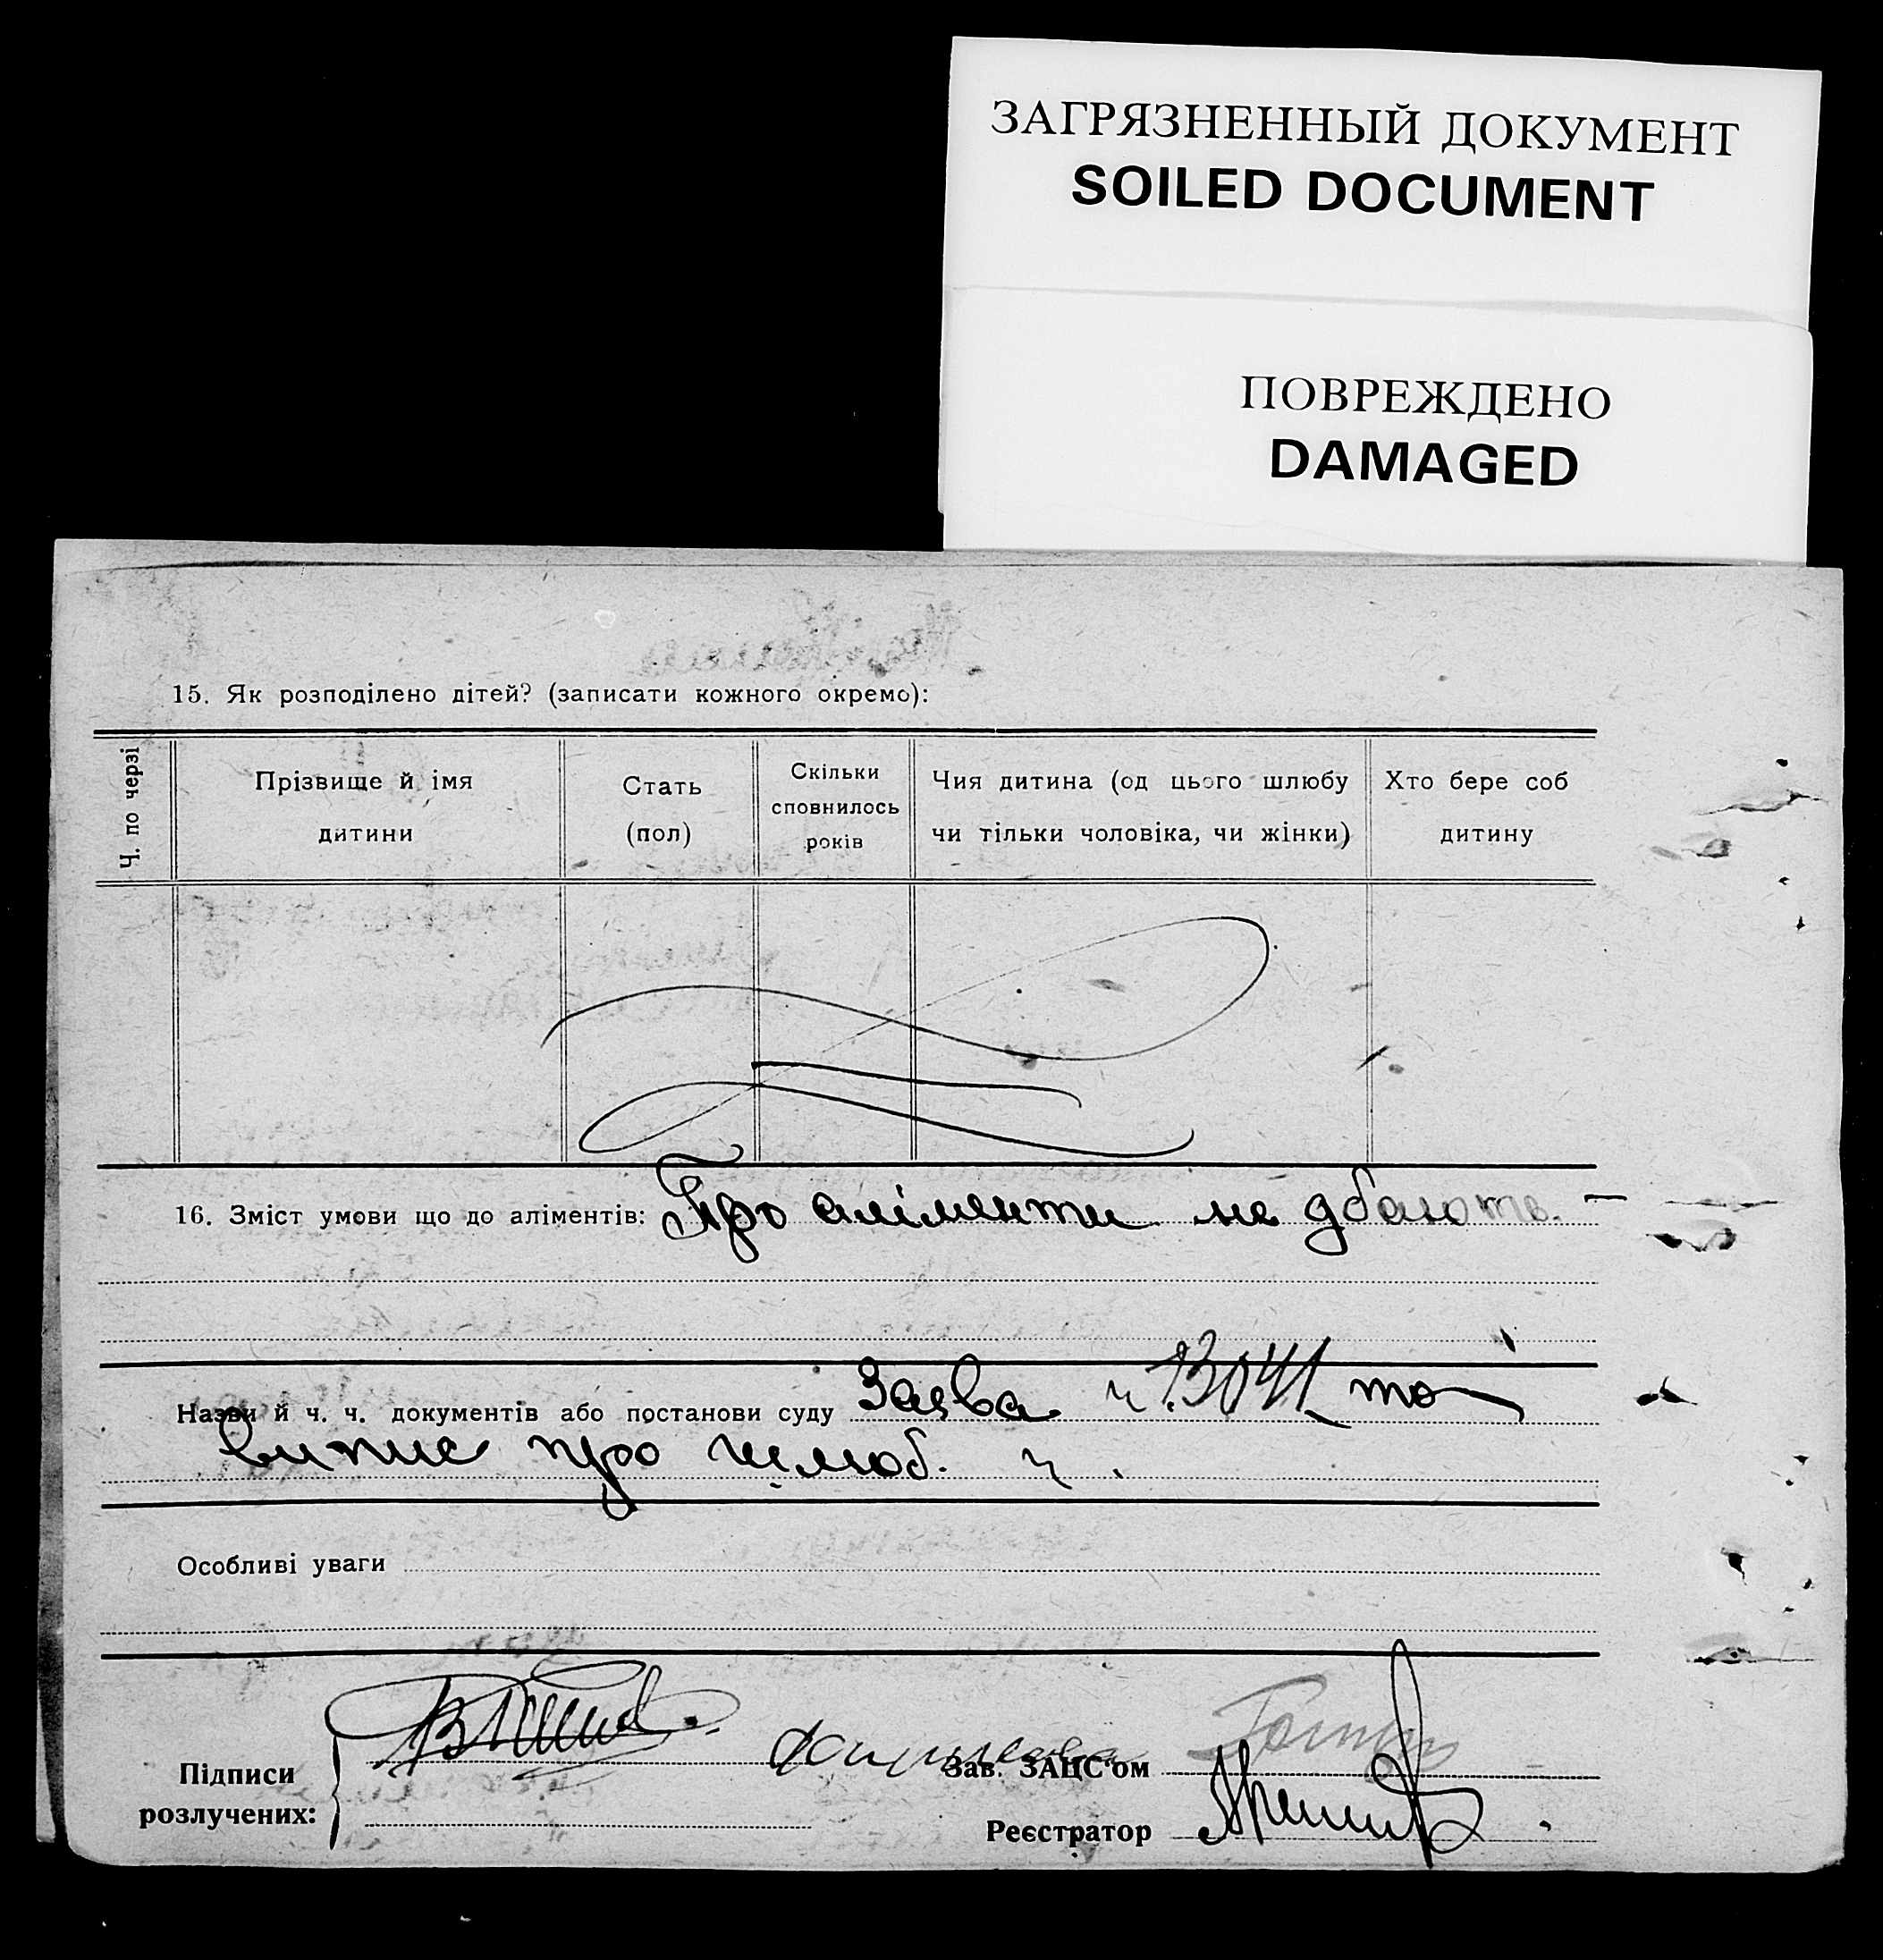 ЗАГРЯЗНЕННЫЙ ДОКУМЕНТ
SOILED DOCUMENT
ПОВРЕЖДЕНО
DAMAGED
15. Як розподілено дітей? (записати кожного окремо):
Ч. по черзі
Прізвище й імя
дитини
Стать
(пол)
Скільки
сповнилось
років
Чия дитина (од цього шлюбу
чи тільки чоловіка, чи жінки)
Хто бере соб
дитину
16. Зміст умови що до аліментів: Про аліменти не дбають. —
Назви й ч. ч. документів або постанови суду Заява ч. 13041 та
випис про шлюб. ч.
Особливі уваги
Підписи
розлучених:
Зав. ЗАЦС'ом
Реєстратор